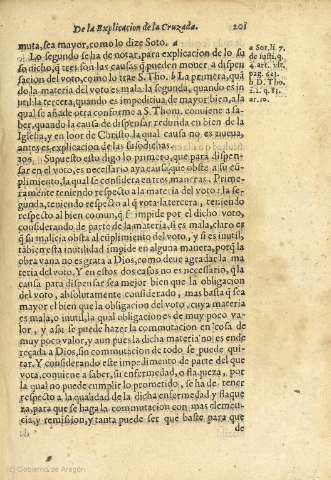 De la Explicacion de la Cruzada. 201
muta, sea mayor, como lo dize Soto. a
Lo segundo se ha de notar, para explicacion de lo su
so dicho, q̃ tres son las causas q̃ pueden mouer a dispen
sacion del voto, como lo trae S. Tho. b La primera, quã
do la materia del voto es mala. la segunda, quando es in
util. la tercera, quando es impeditiua de mayor bien, a la
qual se añade otra conforme a S. Thom. conuiene a sa-
ber, quando la causa de dispensar redunda en bien de la
Iglesia, y en loor de Christo. la qual causa no es nueua,
antes es explicacion de las susodichas.
205. Supuesto esto digo lo primero, que para dispen-
sar en el voto, es necessario aya causa, que obste a su cũ-
plimiento, la qual se considera en tres maneras. Prime-
ramente teniendo respecto a la materia del voto: la se-
gunda, teniendo respecto al q̃ vota: la tercera, teniendo
respecto al bien comun, q̃ se impide por el dicho voto,
considerando de parte de la materia, si es mala, claro es
q̃ su malicia obsta al cũplimiento del voto, y si es inutil,
tãbien esta inutilidad impide en alguna manera, porq̃ la
obra vana no es grata a Dios, como deue agradar la ma
teria del voto. Y en estos dos casos no es necessario, q̃ la
causa para dispensar sea mejor bien que la obligacion
del voto, absolutamente considerado, mas basta q̃ sea
mayor el bien que la obligacion del voto, cuya materia
es mala, o inutil, la qual obligacion es de muy poco va-
lor, y assi se puede hazer la commutacion en cosa de
muy poco valor, y aun pues la dicha materia no es ende
reçada a Dios, sin commutacion de todo se puede qui-
tar. Y considerando este impedimento de parte del que
vota, conuiene a saber, su enfermedad, o flaqueza, por
la qual no puede cumplir lo prometido, se ha de tener
respecto a la qualidad de la dicha enfermedad y flaque
za, para que se haga la commutacion con mas clemen-
cia, y remission, y tanta puede ser que baste para que
de
a Sot. li. 7.
de iusti. q.
4. art. vlt.
pag.
b D. Tho.
2.2. q. 83.
ar. 10.
(c) Gobierno de Aragón